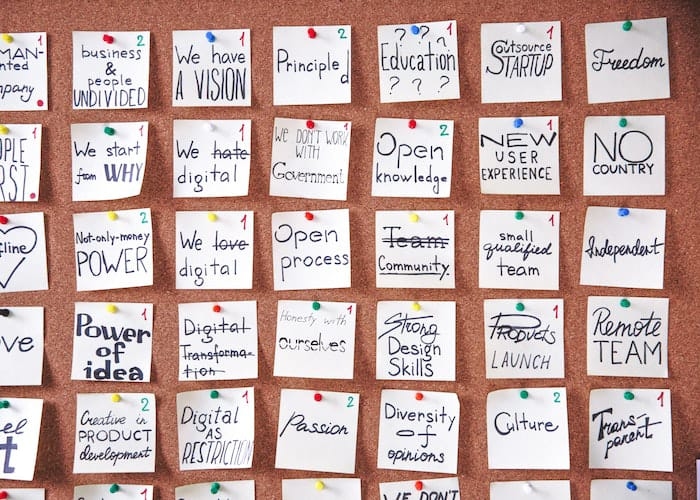 MAN-
nted
mpany
1
business
&
people
UNDIVIDED
2
We have
A VISION
1
Principled
2
? ? ?
Education
? ? ?
1
Outsource
STARTUP
1
Freedom
OPLE
RST
1
We start
from WHY
1
We hate
digital
1
We DON'T WORK
WITH
Government
1
Open
knowledge
2
NEW
USER
EXPERIENCE
1
NO
COUNTRY
ffline
Not-only-money
POWER
2
We love
digital
1
Open
process
1
Team
Community
1
small
qualified
team
1
Independent
ove
Power
of
idea
1
Digital
Transforma-
tion
1
Honesty with
ourselves
1
Strong
Design
Skills
1
Products
LAUNCH
1
Remote
TEAM
2
el
t
2
Creative in
PRODUCT
development
2
Digital
AS
RESTRICTION
1
Passion
2
Diversity
of
opinions
Culture
2
Trans-
parent
1
2
1
WE DON'T